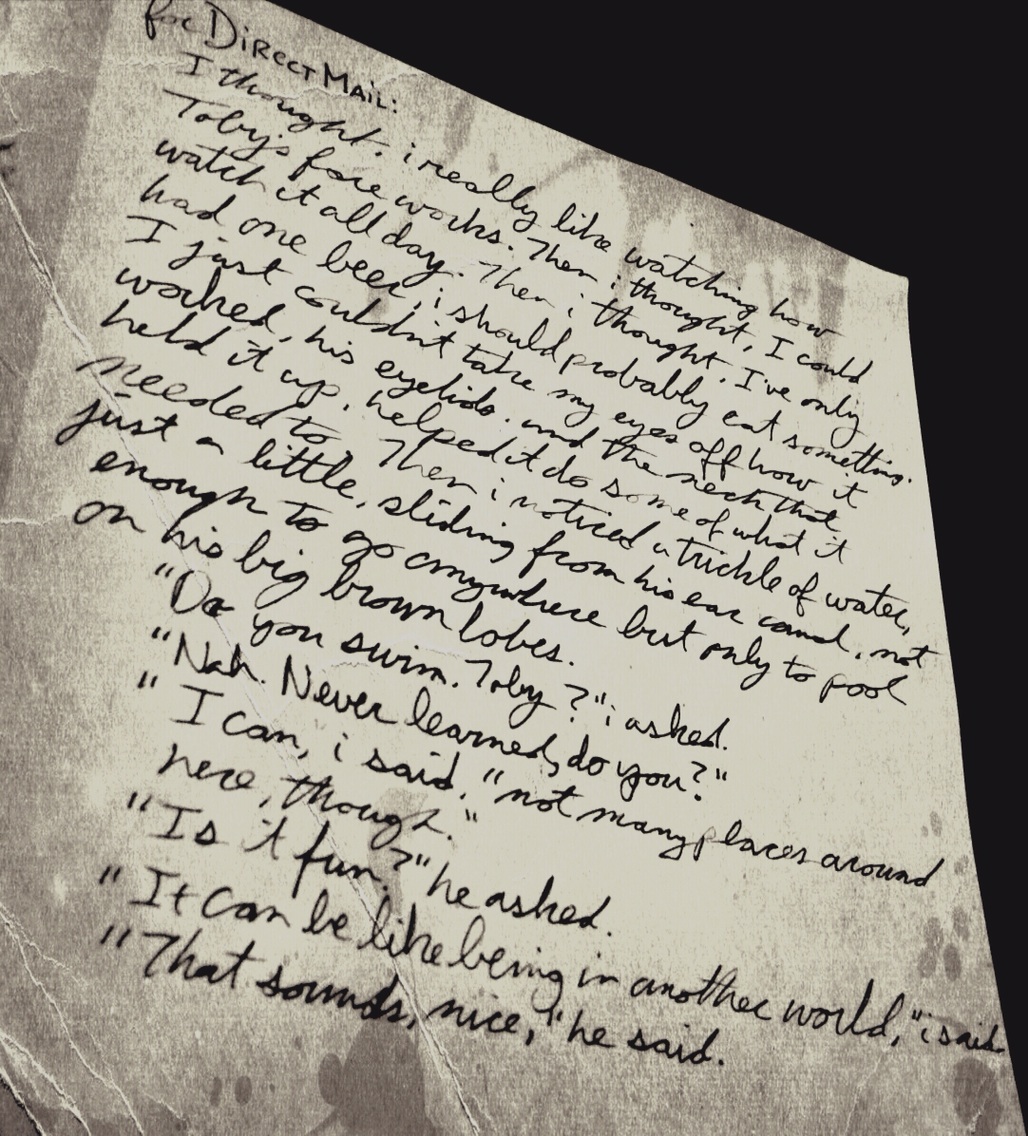 for DIRECT MAIL:
I thought. i really like watching how
Toby's face works. Then i thought, I could
watch it all day. Then i thought. I've only
had one beer, i should probably eat something.
I just couldn't take my eyes off how it
worked, his eyelids. and the neck that
held it up, helped it do some of what it
needed to. Then i noticed a trickle of water,
just a little, sliding from his ear canal, not
enough to go anywhere but only to pool
on his big brown lobes.
"Do you swim. Toby?" i asked.
"Nah. Never learned, do you?"
"I can, i said. "not many places around
here, though."
"Is it fun?" he asked.
"It can be like being in another world," i said.
"That sounds, nice," he said.